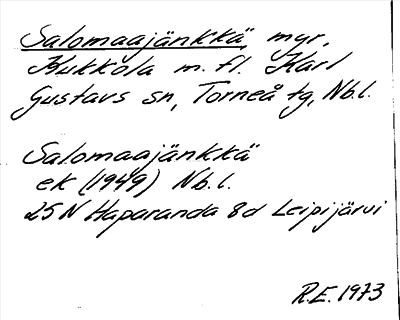 Salomaajänkkä, myr,
Kukkola m. fl. Karl
Gustavs sn, Torneå tg, Nb.l.
Salomaajänkkä
ek (1949) Nb.l.
25N Haparanda 8d Leipijärvi
R.E. 1973